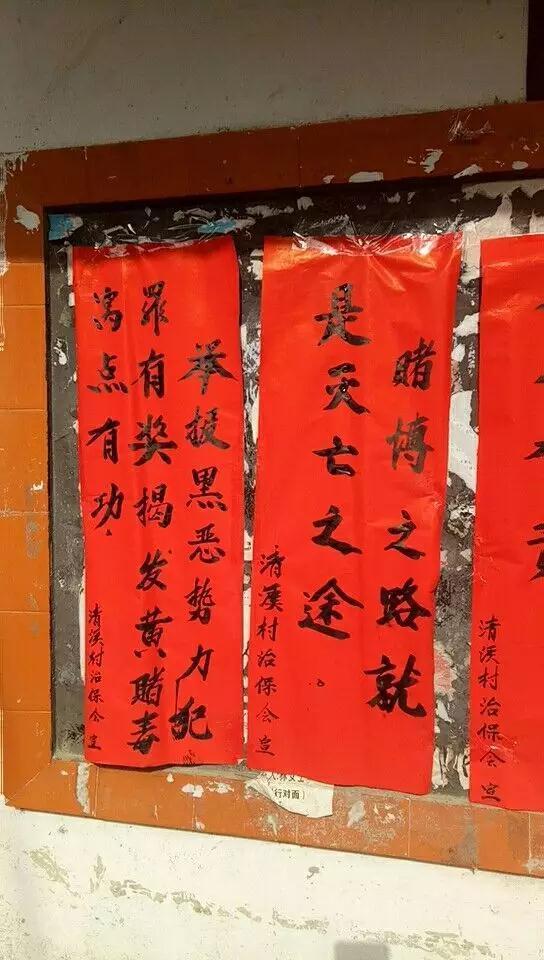 清溪村治保会 宣
赌博之路就
是灭亡之途
清溪村治保会 宣
举报黑恶势力犯
罪有奖揭发黄赌毒
窝点有功
清溪村治保会 宣
(行对面)